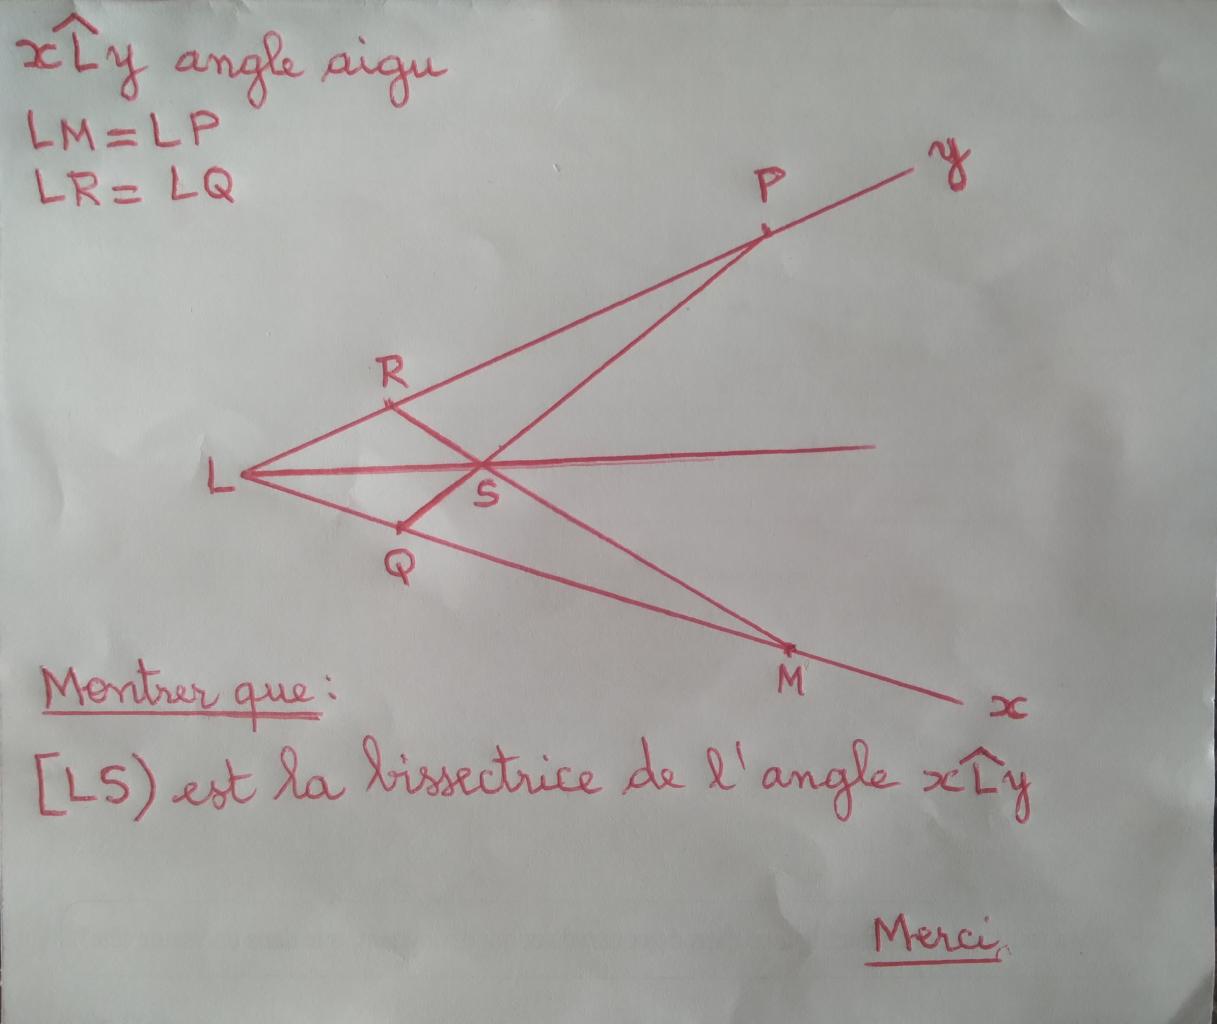 xL̂y angle aigu
LM = LP
LR = LQ
y
P
R
L
S
Q
M
x
Montrer que :
[LS) est la bissectrice de l'angle xL̂y
Merci